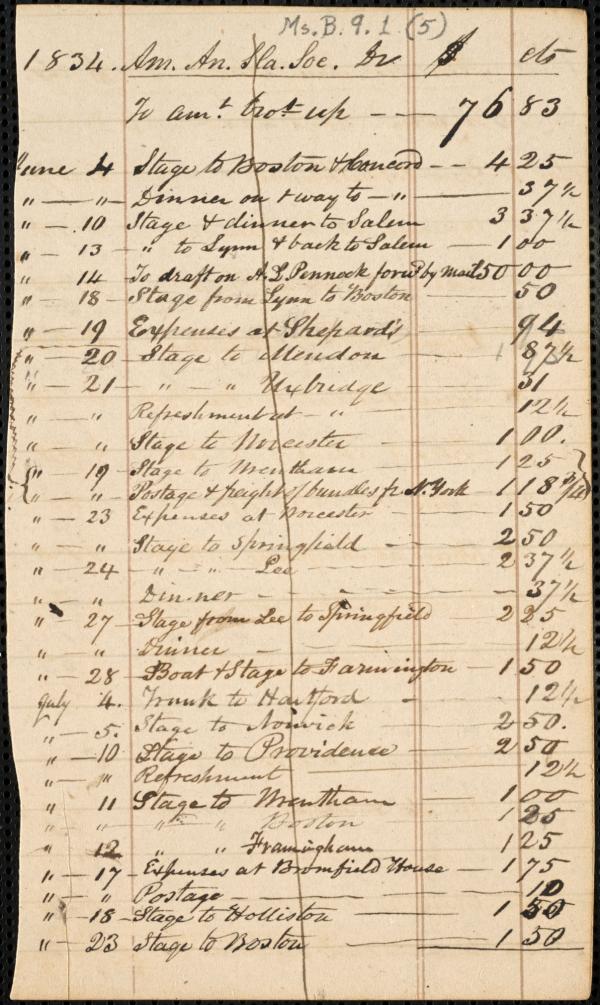 Ms. B. 9. 1 (5)
1834. Am. An. Sla. Soc. Dr $ cts
To amt brot up — — — 76 83
June 4 Stage to Boston & Concord — — 4 25
" — " — Dinner on & way to — " — 37½
" — 10 Stage & dinner to Salem 3 37½
" — 13 " to Lynn & back to Salem — 1 00
" 14 To draft on A. L. Pennock forwd by mail 50 00
" — 18 — Stage from Lynn to Boston 50
" — 19 Expenses at Shepard's 94
" — 20 — Stage to Mendon — 87½
" — 21 — " — " Uxbridge — 31
" — " Refreshment at — " — 12½
" — " Stage to Worcester — 1 00.
" — 19 — Stage to Wrentham — 1 25
" — " — Postage & freight of bundles fr N. York — 1 18
" — 23 Expenses at Worcester — 1 50
" — " Stage to Springfield — 2 50
" — 24 — " — " — Lee — 2 37½
" — " Dinner — 37½
" — 27 — Stage from Lee to Springfield 2 25
" — " Dinner — 12½
" — 28 — Boat & Stage to Farmington — 1 50
July 4. Trunk to Hartford - 12½
" — 5. Stage to Norwich — 2 50.
" — 10 Stage to Providence — 2 50
" — " Refreshment — 12½
" 11 Stage to Wrentham — 1 00
" — " — " " Boston 1 25
" 12 " " Framingham 1 25
" — 17 — Expenses at Bromfield House — 1 75
" — " Postage — 10
" — 18 — Stage to Holliston — 1 50
" — 23 Stage to Boston — 1 50